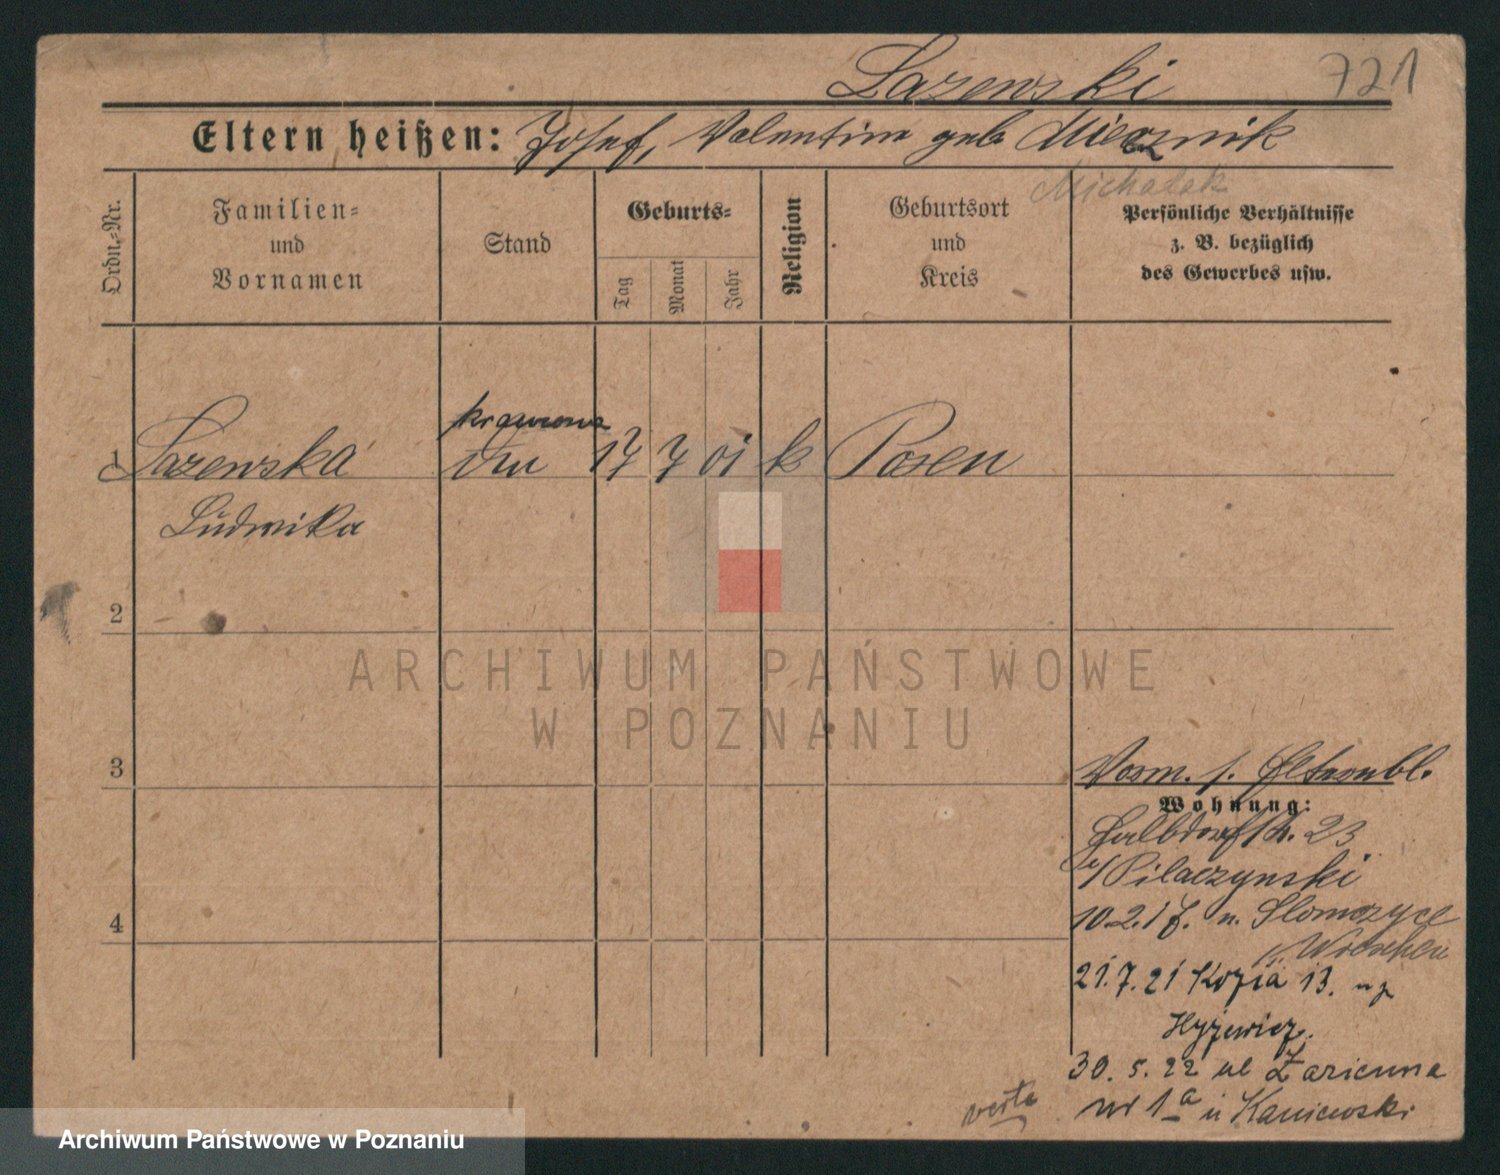 Lazewski 721
Eltern heißen: Josef, Valentine geb. Miecznik
Michalak
Ordn.-Nr.
Familien-
und
Vornamen
Stand
Geburts-
Tag
Monat
Jahr
Religion
Geburtsort
und
Kreis
Persönliche Verhältnisse
z. B. bezüglich
des Gewerbes usw.
krawcowa
1 Lazewska 17 7 01 k Posen
Ludwika
2
ARCHIWUM PAŃSTWOWE
W POZNANIU
3
Vorm. s.
Wohnung:
Halbdorfstr. 23
b/ Pilaczynski
10.2.17. n. Slomczyce
Wreschen
21.7.21 Kozia 13.
Hyżewicz.
4
30. 5. 22 ul
nr 1a u Kaniewski
verte
Archiwum Państwowe w Poznaniu